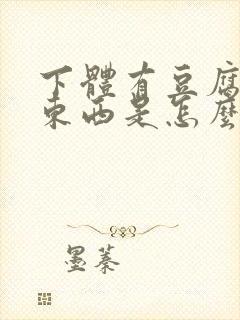 下體有豆腐
東西是怎麼
墨蓁